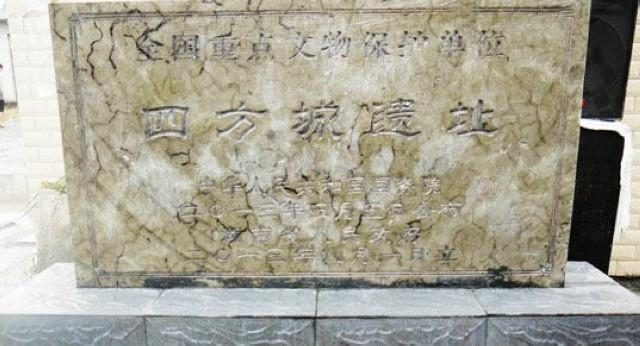 全国重点文物保护单位
四方城遗址
中华人民共和国国务院
二〇一三年三月五日公布
人民政府
二〇一三年八月一日立